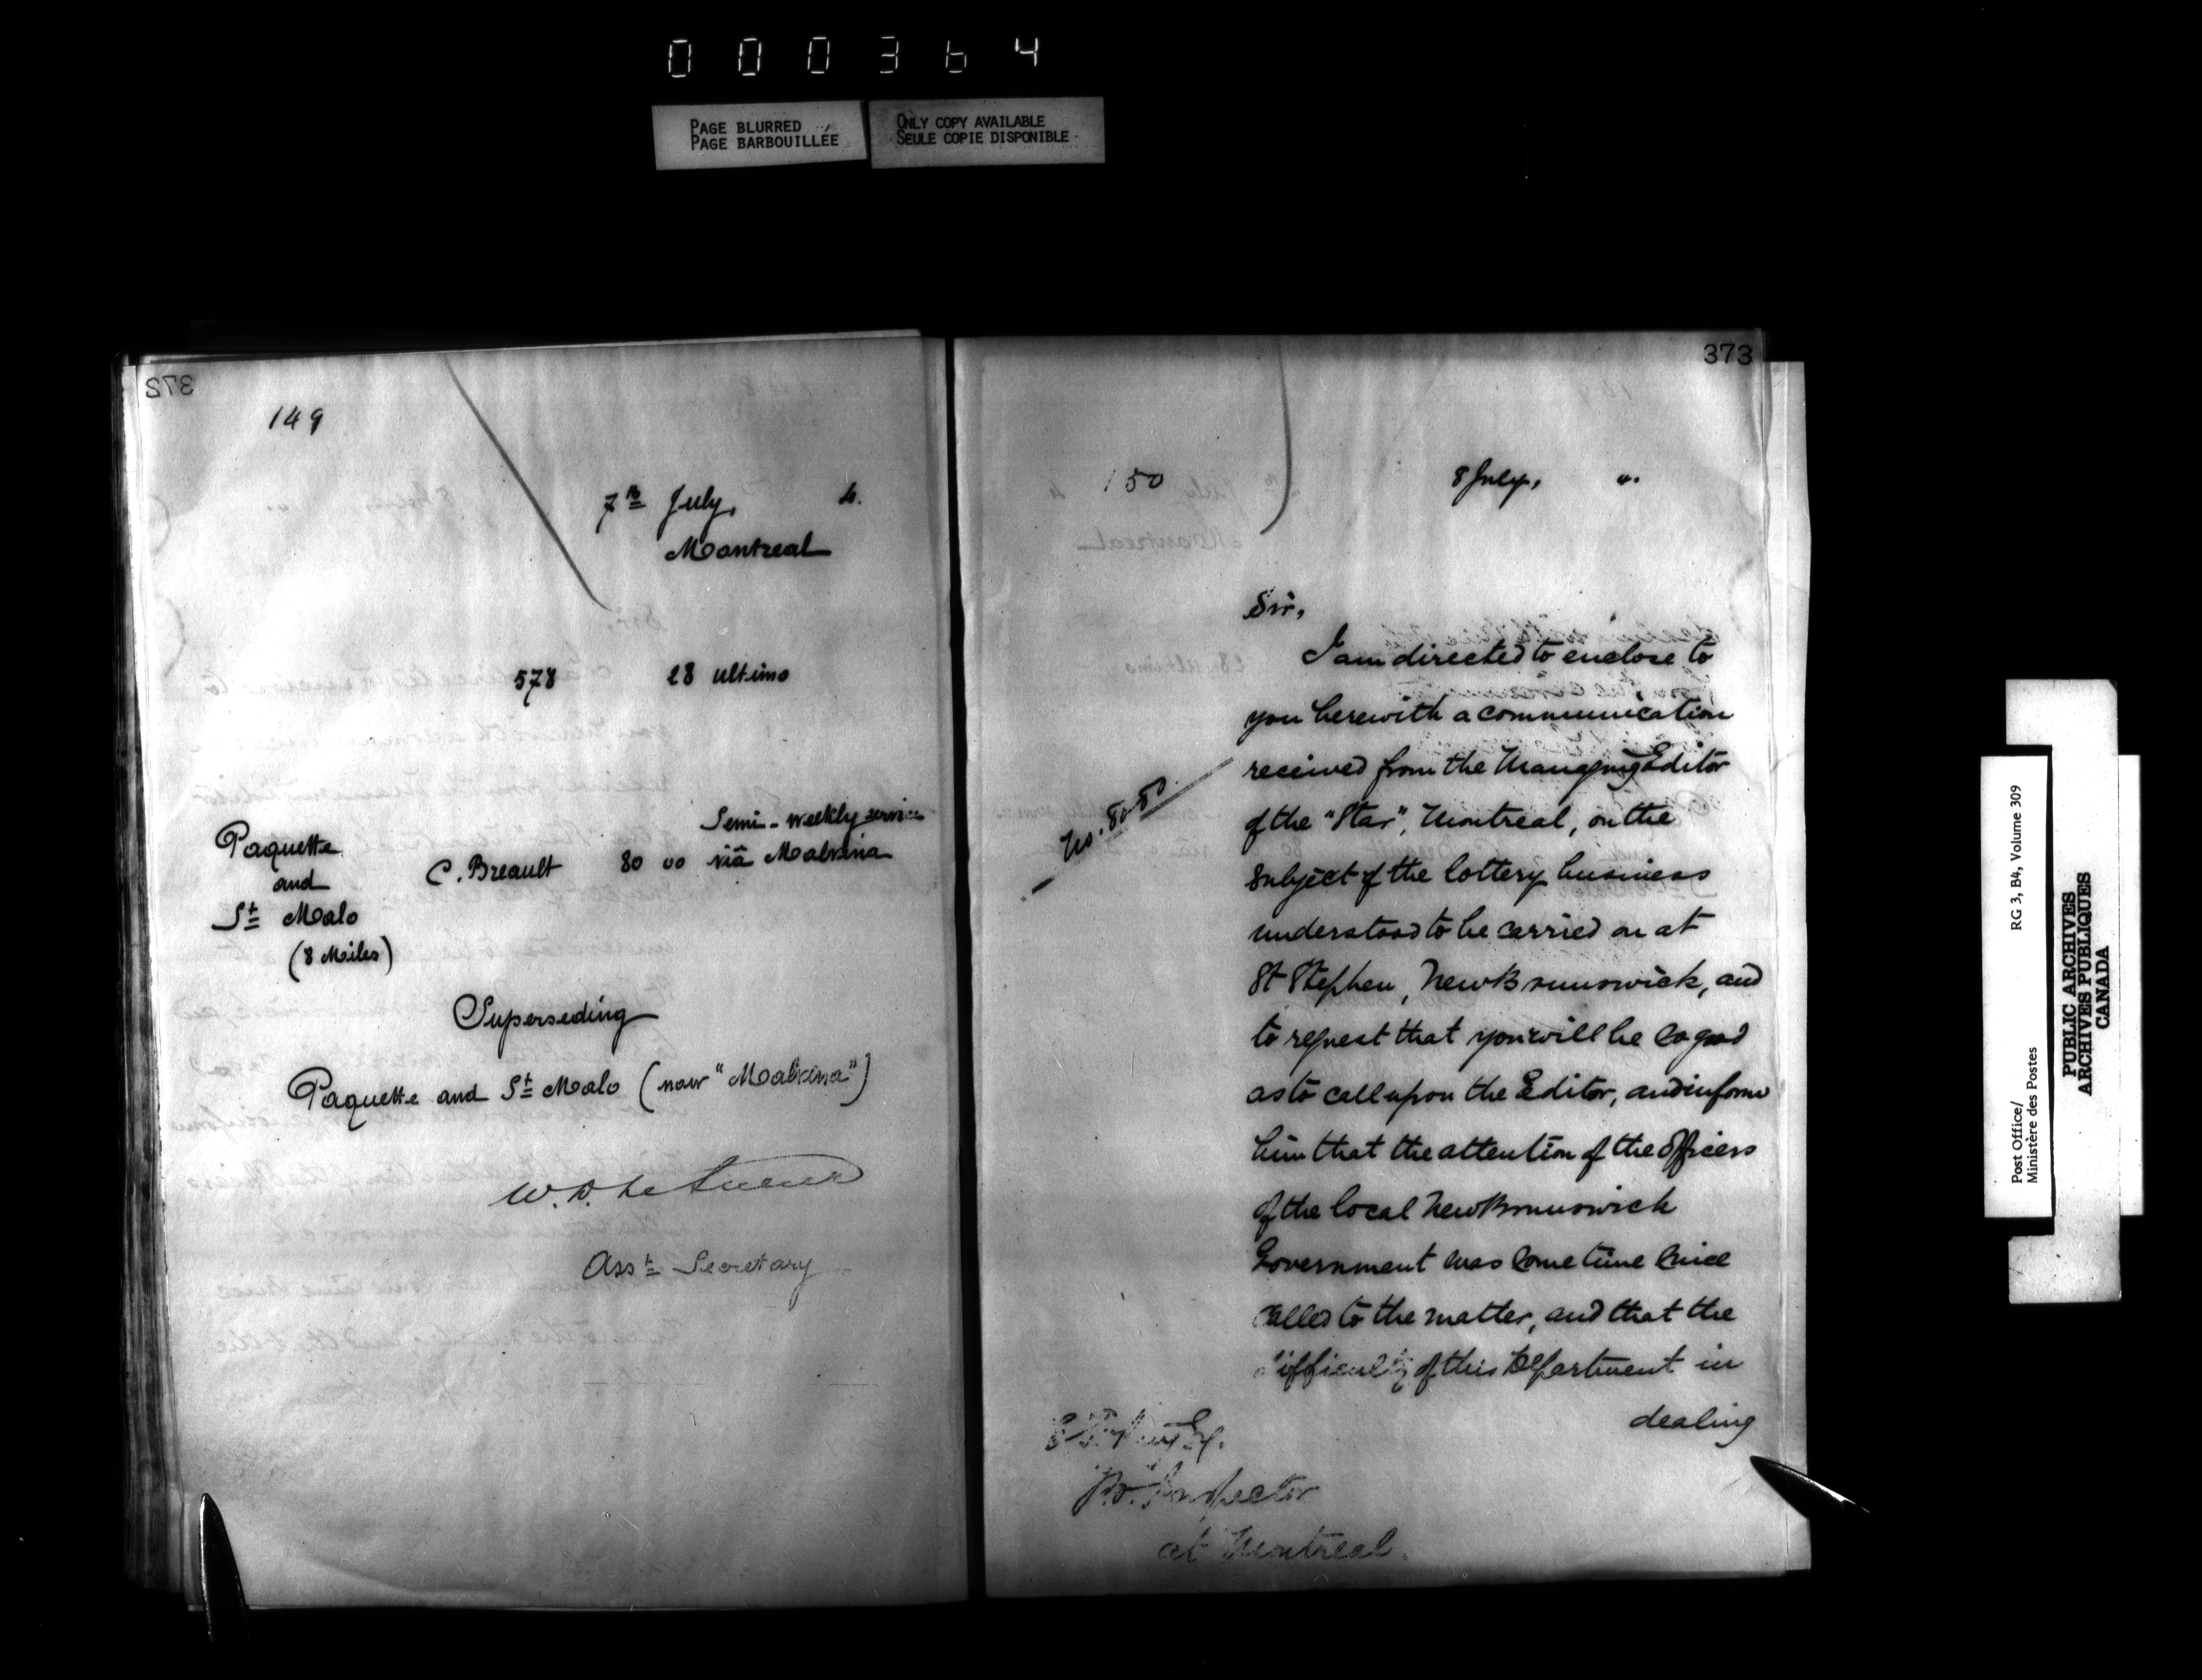 000364
PAGE BLURRED
PAGE BARBOUILLÉE
ONLY COPY AVAILABLE
SEULE COPIE DISPONIBLE
372
149
7th July, 4.
Montreal
578 28 ultimo
Paquette
and
St Malo
(8 Miles)
C. Breault 80 00
Semi-weekly service
via Malvina
Superseding
Paquette and St Malo (now "Malvina")
W. D. LeSueur
Asst Secretary
373
150 8 July, 4.
No. 80-80
Sir,
I am directed to enclose to
you herewith a communication
received from the Managing Editor
of the "Star", Montreal, on the
subject of the lottery business
understood to be carried on at
St Stephen, New Brunswick, and
to request that you will be so good
as to call upon the Editor, and inform
him that the attention of the Officers
of the local New Brunswick
Government was some time since
called to the matter, and that the
difficulty of this Department in
dealing
P.O. Inspector
at Montreal.
Post Office/
Ministère des Postes
RG 3, B4, Volume 309
PUBLIC ARCHIVES
ARCHIVES PUBLIQUES
CANADA